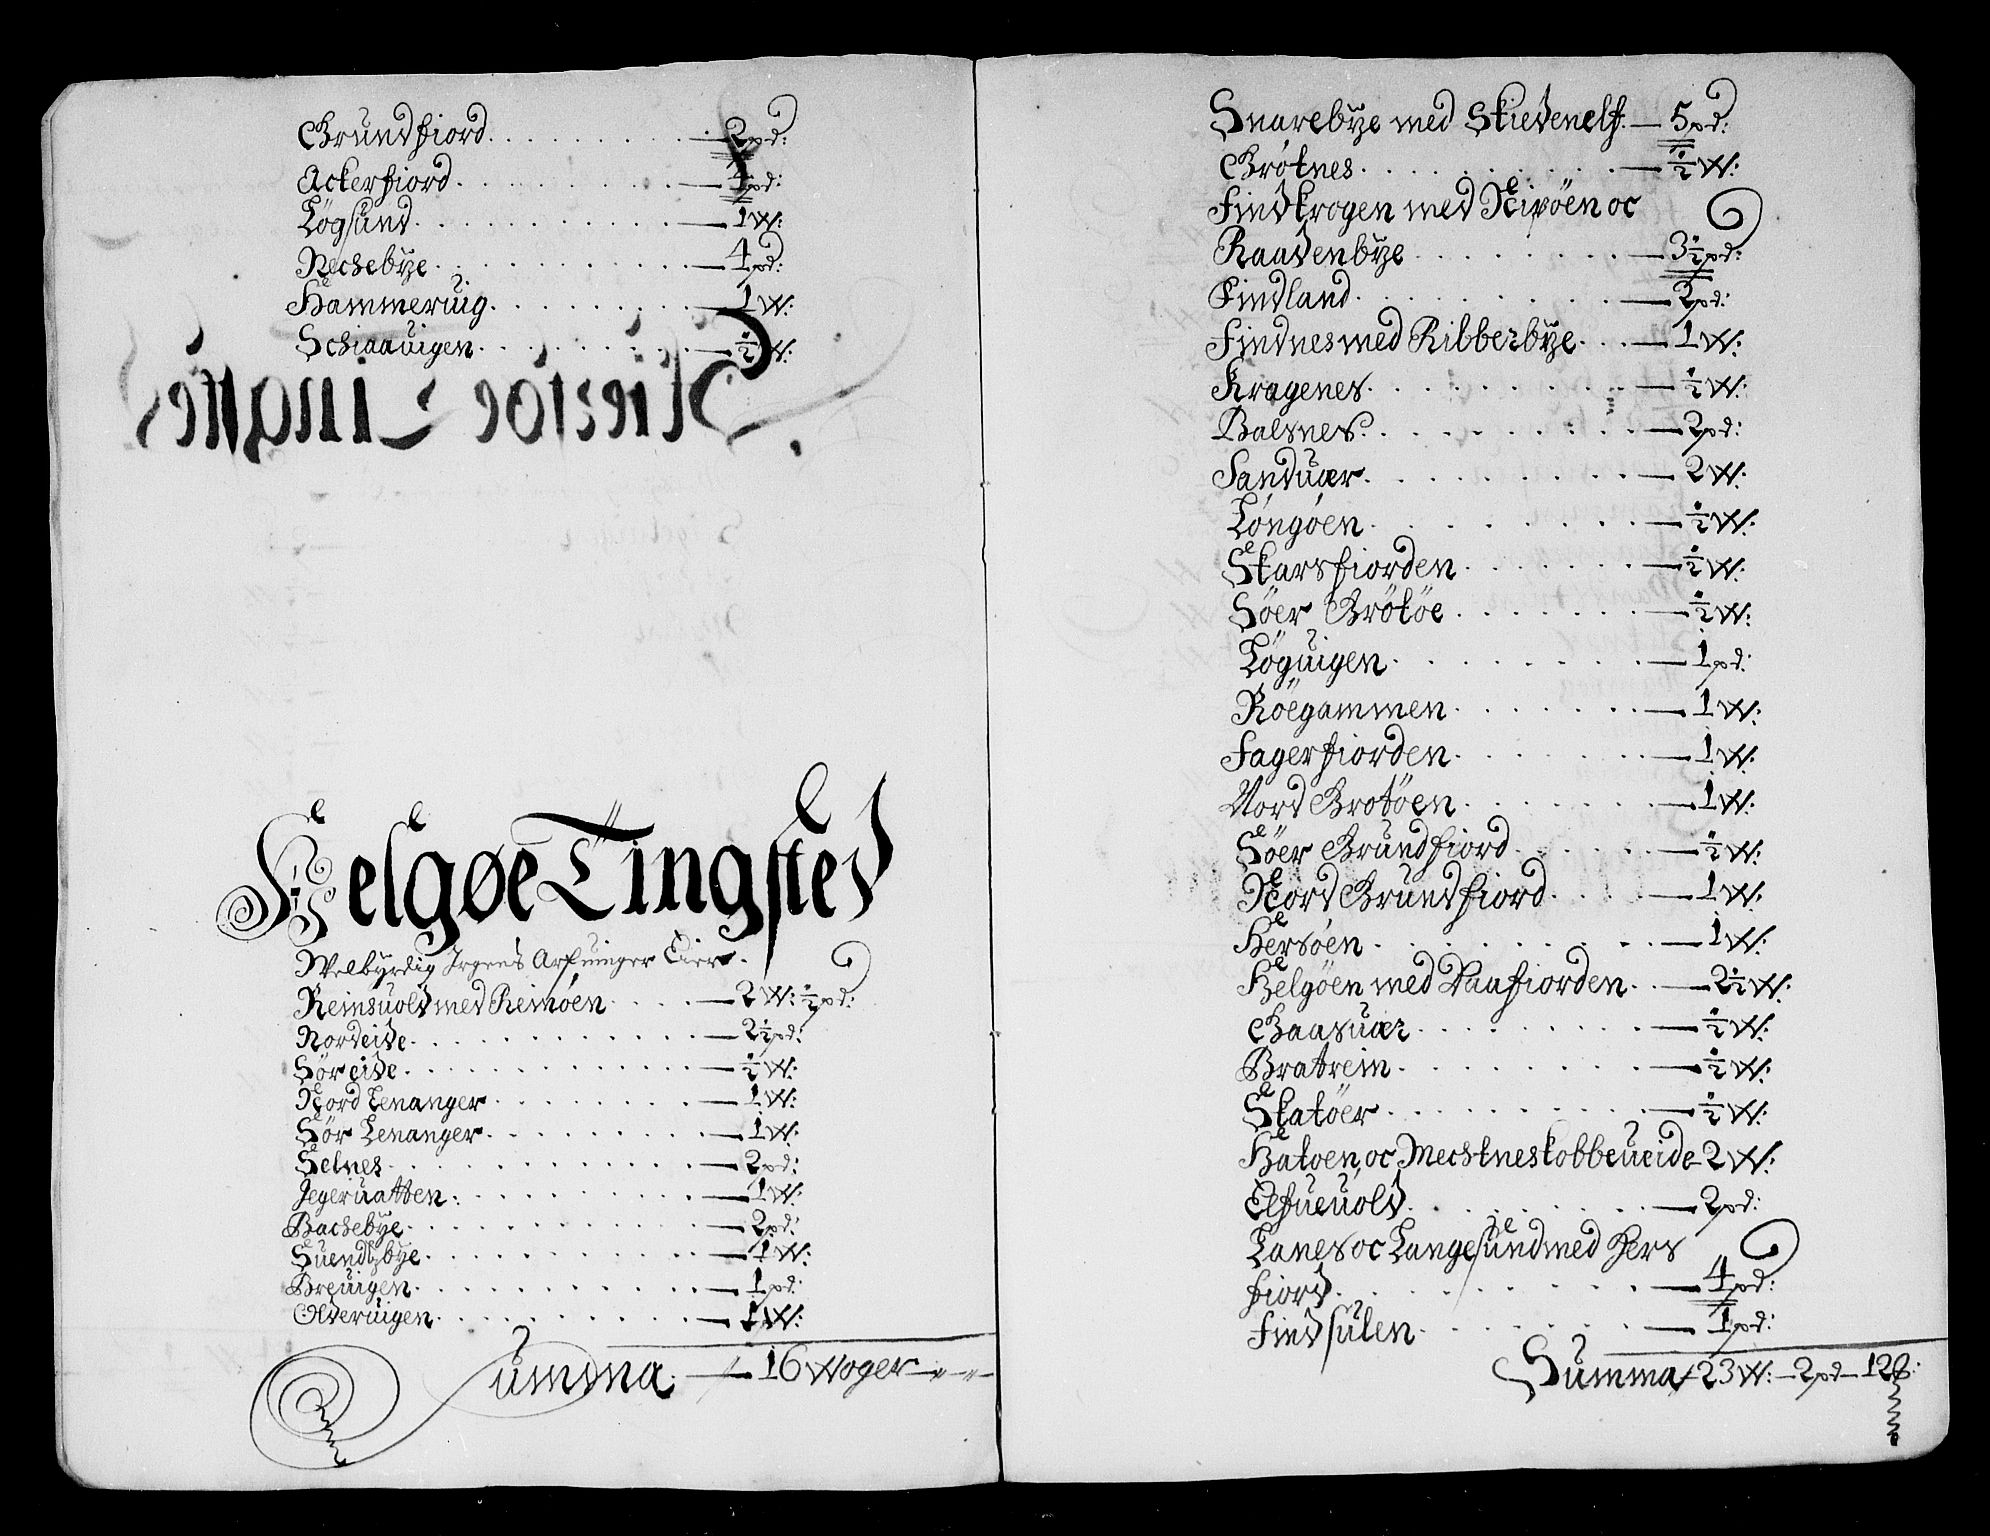 Grundfiord. . . . . . . . . — 2pd:
Ackerfiord. . . . . . . . . — 1pd:
Løgsund. . . . . . . . . — 1W:
Rechebye. . . . . . . . . — 4pd:
Hammeruig. . . . . . . . . — 1W:
Schiaauigen. . . . . . . . . — ½W:
Helgøe Tingsted
Welbyrdig Irgens Arfuinger Eier.
Reinsuold med Reinøen . . . . — 2W: ½pd:
Nordeide. . . . . . . . . — 2½pd:
Sör eide. . . . . . . . . — ½W:
Nord Lenanger . . . . . . . — 1W:
Sör Lenanger. . . . . . . . — 1W:
Selnes. . . . . . . . . — 2pd:
Jegeruatten. . . . . . . . . — 1W:
Bachebye. . . . . . . . . — 2pd:
Suendsbye. . . . . . . . . — 1W:
Breuigen. . . . . . . . . — 1pd:
Olderuigen. . . . . . . . . — 1W:
Summa. — 16 Woger
Snarebye med Skiedenelf. — 5pd:
Grötnes. . . . . . . . . — ½W:
Findkrogen med Nipöen oc
Raadenbye . . . . . . . . — 3½pd:
Findland. . . . . . . . . — 2pd:
Findnes med Ribberbye. . . — 1W:
Kragenes. . . . . . . . . — ½W:
Balsnes. . . . . . . . . — 2pd:
Sanduær. . . . . . . . . — 2W:
Löngöen. . . . . . . . . — ½W:
Skarsfiorden . . . . . . . — ½W:
Söer Grötöe . . . . . . . — ½W:
Löguigen. . . . . . . . . — 1pd:
Röegammen. . . . . . . . — 1W:
Fagerfiorden. . . . . . . — 1W:
Nord Grotöen. . . . . . . — 1W:
Söer Grundfiord. . . . . . — ½W:
Nord Grundfiord. . . . . . — 1W:
Hersöen. . . . . . . . . — 1W:
Helgöen med Daafiorden. . — 2½W:
Gaasuær. . . . . . . . . — ½W:
Bratrein. . . . . . . . . — ½W:
Skatöer. . . . . . . . . — ½W:
Hatoen, oc Mechtneskobbeueide — 2W:
Elfueuold. . . . . . . . . — 2pd:
Lanes oc Langesund med Hers
fiord. . . . . . . . . — 4pd:
Findsulen. . . . . . . . . — 1pd:
Summa — 23W: — 2pd —